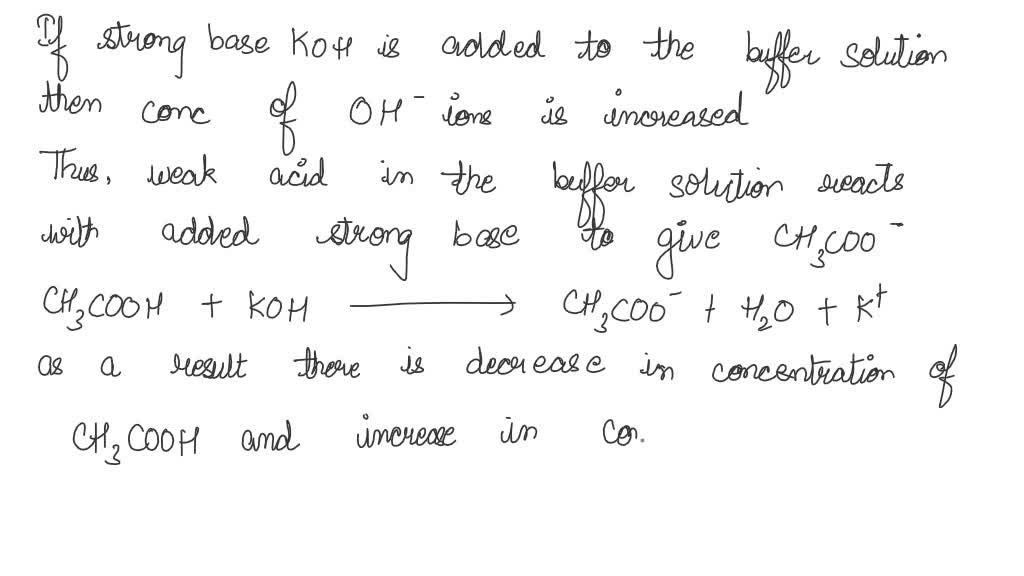 If strong base KOH is added to the buffer solution
then conc of OH⁻ ions is increased
Thus, weak acid in the buffer solution reacts
with added strong base to give CH₃COO⁻
CH₃COOH + KOH ⟶ CH₃COO⁻ + H₂O + K⁺
as a result there is decrease in concentration of
CH₃COOH and increase in con.